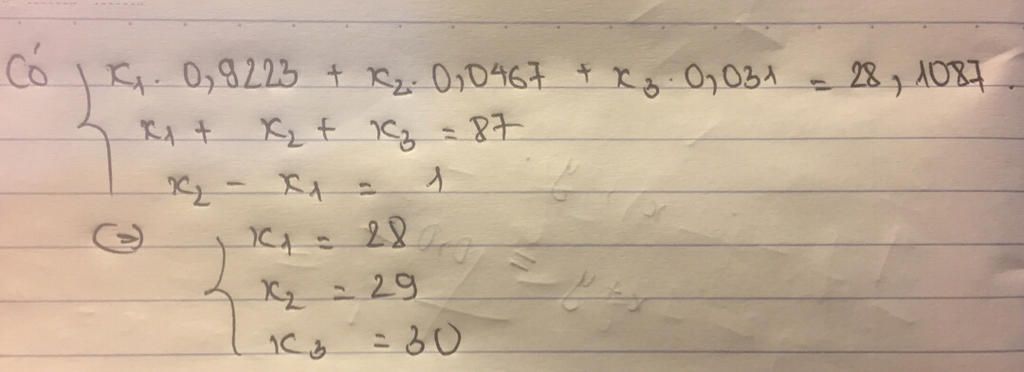 Có { x₁. 0,9223 + x₂. 0,0467 + x₃. 0,031 = 28,1087.
x₁ + x₂ + x₃ = 87
x₂ - x₁ = 1
(=) { x₁ = 28
x₂ = 29
x₃ = 30